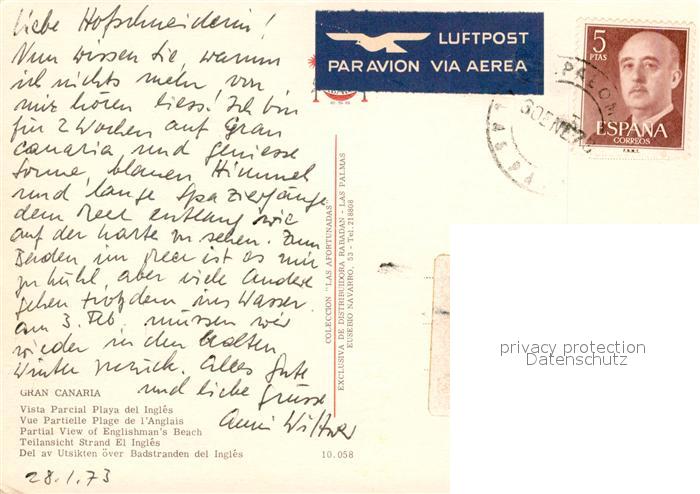 Liebe Hofschneiderin!
Nun wissen Sie, warum
ich nichts mehr von
mir hören liess! Ich bin
für 2 Wochen auf Gran
Canaria und geniesse
Sonne, blauen Himmel
und lange Spaziergänge
dem Meer entlang wie
auf der Karte zu sehen. Zum
Baden im Meer ist es mir
zu kühl, aber viele Andere
gehen trotzdem ins Wasser.
Am 3. Feb. müssen wir
wieder in den kalten
Winter zurück. Alles Gute
und liebe Grüsse
GRAN CANARIA
Vista Parcial Playa del Inglés
Vue Partielle Plage de l'Anglais
Partial View of Englishman's Beach
Teilansicht Strand El Inglés
Del av Utsikten över Badstranden del Inglés
10.058
28.1.73
COLECCION "LAS AFORTUNADAS"
EXCLUSIVA DE DISTRIBUIDORA RABADAN - LAS PALMAS
EUSEBIO NAVARRO, 53 - Tel. 218808
LUFTPOST
PAR AVION VIA AEREA
5
PTAS
ESPAÑA
CORREOS
F.N.M.T.
privacy protection
Datenschutz